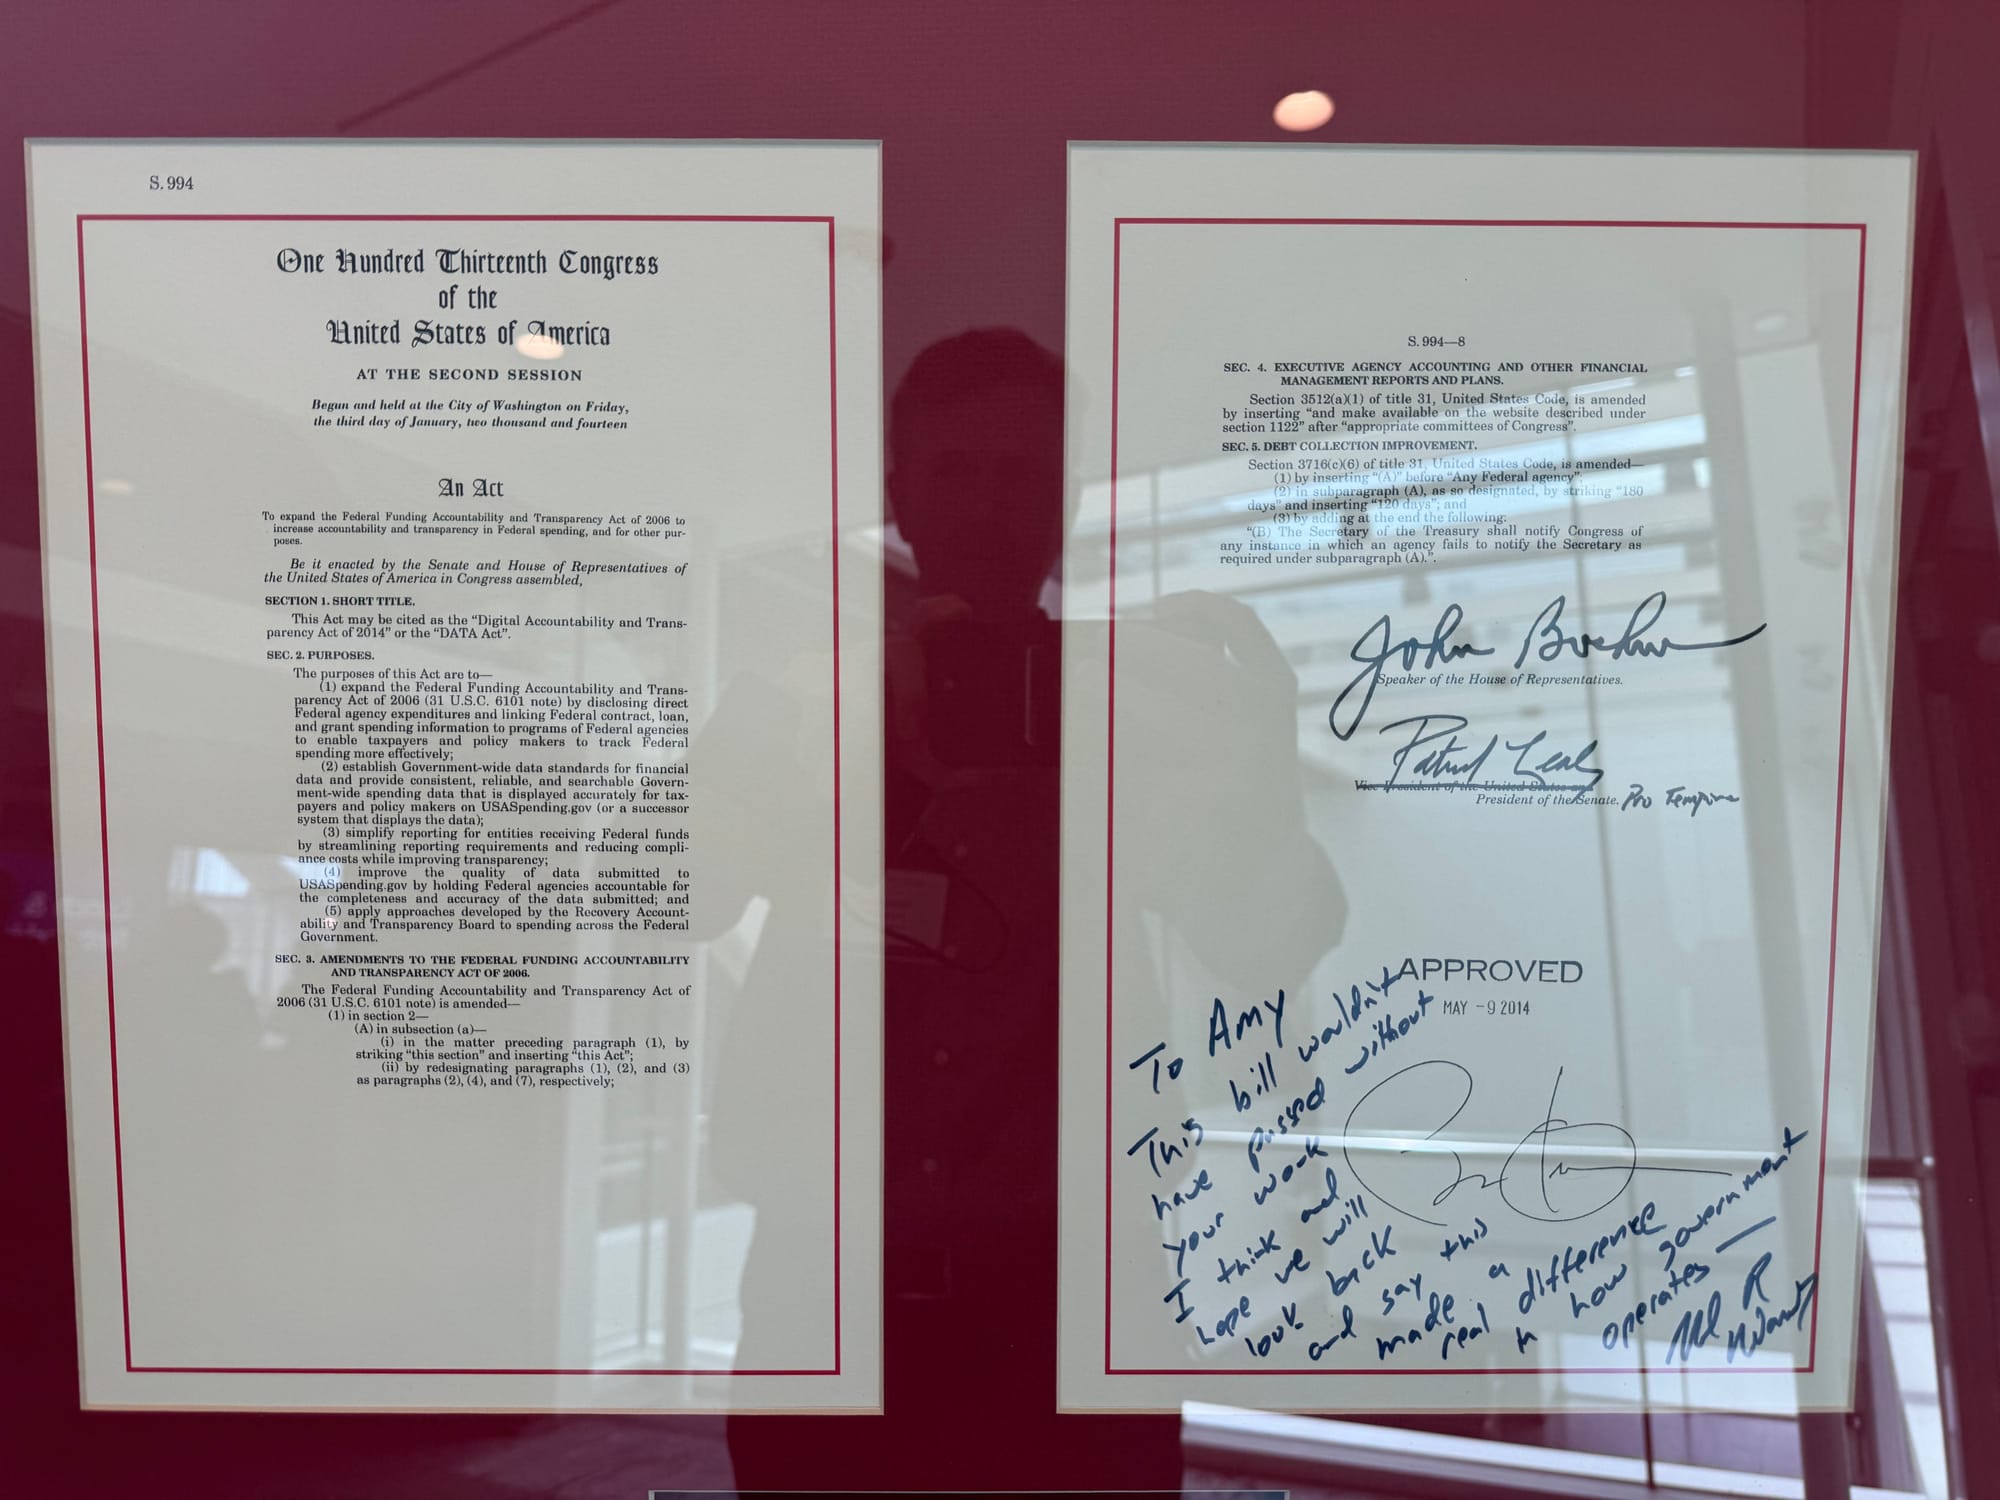 S. 994
One Hundred Thirteenth Congress
of the
United States of America
AT THE SECOND SESSION
Begun and held at the City of Washington on Friday,
the third day of January, two thousand and fourteen
An Act
To expand the Federal Funding Accountability and Transparency Act of 2006 to
increase accountability and transparency in Federal spending, and for other pur-
poses.
Be it enacted by the Senate and House of Representatives of
the United States of America in Congress assembled,
SECTION 1. SHORT TITLE.
This Act may be cited as the “Digital Accountability and Trans-
parency Act of 2014” or the “DATA Act”.
SEC. 2. PURPOSES.
The purposes of this Act are to—
(1) expand the Federal Funding Accountability and Trans-
parency Act of 2006 (31 U.S.C. 6101 note) by disclosing direct
Federal agency expenditures and linking Federal contract, loan,
and grant spending information to programs of Federal agencies
to enable taxpayers and policy makers to track Federal
spending more effectively;
(2) establish Government-wide data standards for financial
data and provide consistent, reliable, and searchable Govern-
ment-wide spending data that is displayed accurately for tax-
payers and policy makers on USASpending.gov (or a successor
system that displays the data);
(3) simplify reporting for entities receiving Federal funds
by streamlining reporting requirements and reducing compli-
ance costs while improving transparency;
(4) improve the quality of data submitted to
USASpending.gov by holding Federal agencies accountable for
the completeness and accuracy of the data submitted; and
(5) apply approaches developed by the Recovery Account-
ability and Transparency Board to spending across the Federal
Government.
SEC. 3. AMENDMENTS TO THE FEDERAL FUNDING ACCOUNTABILITY
AND TRANSPARENCY ACT OF 2006.
The Federal Funding Accountability and Transparency Act of
2006 (31 U.S.C. 6101 note) is amended—
(1) in section 2—
(A) in subsection (a)—
(i) in the matter preceding paragraph (1), by
striking “this section” and inserting “this Act”;
(ii) by redesignating paragraphs (1), (2), and (3)
as paragraphs (2), (4), and (7), respectively;
S. 994—8
SEC. 4. EXECUTIVE AGENCY ACCOUNTING AND OTHER FINANCIAL
MANAGEMENT REPORTS AND PLANS.
Section 3512(a)(1) of title 31, United States Code, is amended
by inserting “and make available on the website described under
section 1122” after “appropriate committees of Congress”.
SEC. 5. DEBT COLLECTION IMPROVEMENT.
Section 3716(c)(6) of title 31, United States Code, is amended—
(1) by inserting “(A)” before “Any Federal agency”;
(2) in subparagraph (A), as so designated, by striking “180
days” and inserting “120 days”; and
(3) by adding at the end the following:
“(B) The Secretary of the Treasury shall notify Congress of
any instance in which an agency fails to notify the Secretary as
required under subparagraph (A).”.
John Boehner
Speaker of the House of Representatives.
Patrick Leahy
Vice President of the United States and
President of the Senate. Pro Tempore
APPROVED
MAY -9 2014
To Amy
This bill wouldn't
have passed without
your work
I think and
hope we will
look back
and say this
made a
real difference
in how government
operates —